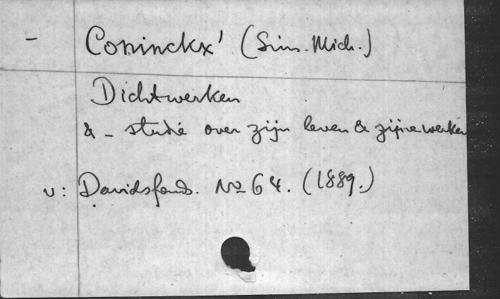 - Coninckx' (Sim. Mich.)
Dichtwerken
& - studie over zijn leven & zijne werken
v: Davidsfonds. No 64. (1889.)